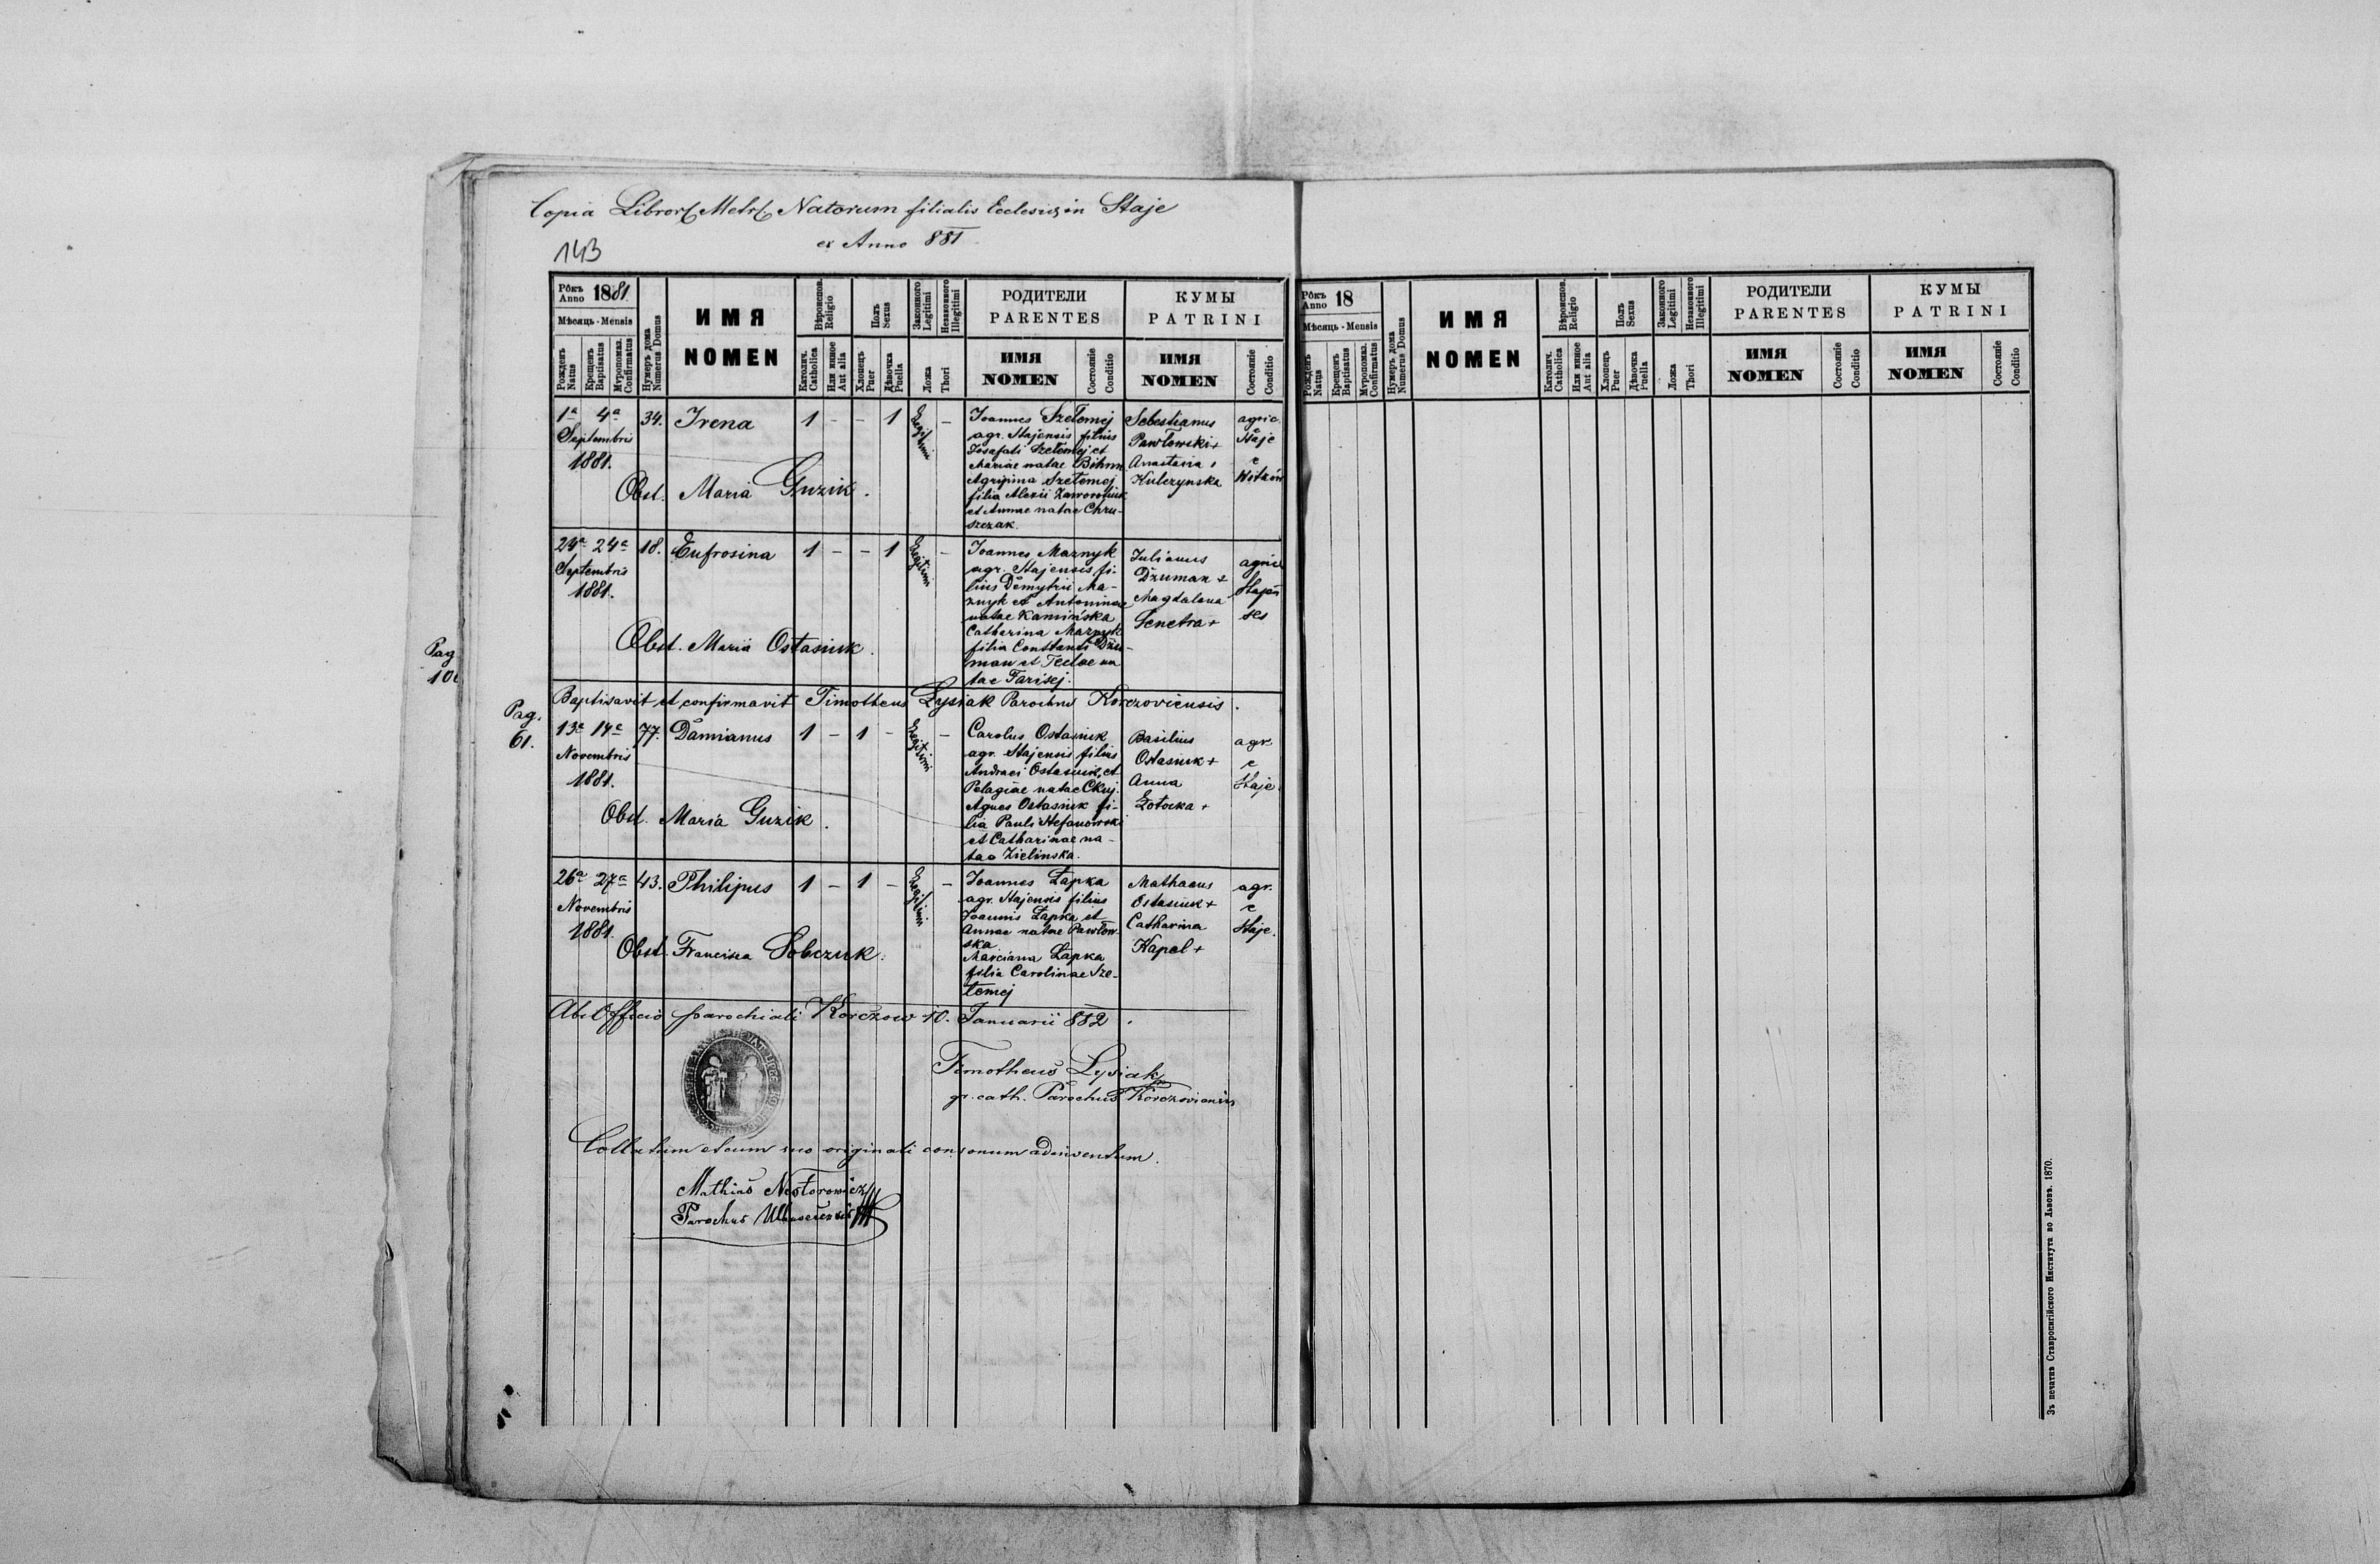 Copia Libror. Metr. Natorum filialis Ecclesiæ in Staje
ex Anno 881
143
Рôкъ Anno 1881
Мѣсяць - Mensis
Рожденъ Natus
Крещенъ Baptisatus
Мѵропомаз. Confirmatus
Нумеръ дома Numerus Domus
ИМЯ
NOMEN
Вѣроисповѣд. Religio
Католич. Catholica
Или инное Aut alia
Полъ Sexus
Хлопець Puer
Дѣвочка Puella
Законного Legitimi
Незаконного Illegitimi
Ложа
Thori
РОДИТЕЛИ
PARENTES
ИМЯ
NOMEN
Состоянiе Conditio
КУМЫ
PATRINI
ИМЯ
NOMEN
Состоянiе Conditio
1a 4a 34. Irena 1 - - 1 Legitimi -
Septembris
1881.
Obst. Maria Guzik.
Joannes Szełomej
agr. Stajensis filius
Josafati Szełomej et
Mariae natae Bihun
Agripina Szełomej
filia Alexii
et Annae natae Chru-
szczak.
Sebestianus
Pawłowski +
Anastasia
Kulczynska
agric.
e
Staje
e
Witków
24a 24a 18. Eufrosina 1 - - 1 Legitimi -
Septembris
1881.
Obst. Maria Ostasiuk.
Joannes Maznyk
agr. Stajensis fi-
lius Demytrii Ma-
znyk et Antoninae
natae Kamińska
Catharina Maznyk
filia Constanti Dżu-
man et Teclae na
tae Farisej.
Julianus
Dżuman +
Magdalena
Senetra +
agric
Stajen
ses
Pag.
10
Baptisavit et confirmavit Timotheus Lysiak Parochus Korczoviensis.
Pag.
61.
13a 14a 77. Damianus 1 - 1 - Legitimi -
Novembris
1881.
Obst. Maria Guzik.
Carolus Ostasiuk
agr. Stajensis filius
Andraei Ostasiuk, et
Pelagiae natae Ckuj.
Agnes Ostasiuk fi-
lia Pauli Stefanowski
et Catharinae na-
tae Zielinska.
Basilius
Ostasiuk +
Anna
Łotocka +
agr.
e
Staje.
26a 27a 43. Philipus 1 - 1 - Legitimi -
Novembris
1881.
Obst. Francisca Sobczuk.
Joannes Łapka
agr. Stajensis filius
Joannis Łapka et
Annae natae Pawłow-
ska
Marcianna Łapka
filia Carolinae Sze-
łomej
Mathaeus
Ostasiuk +
Catharina
Kapel +
agr.
e
Staje.
Ab Officio parochiali Korczow 10. Januarii 882.
Timotheus Lysiak
gr. cath. Parochus Korczoviensis
Collatum et cum suo originali consonum adinventum.
Mathias Nestorowicz
Parochus
Рôкъ Anno 18
Мѣсяць - Mensis
Рожденъ Natus
Крещенъ Baptisatus
Мѵропомаз. Confirmatus
Нумеръ дома Numerus Domus
ИМЯ
NOMEN
Вѣроисповѣд. Religio
Католич. Catholica
Или инное Aut alia
Полъ Sexus
Хлопець Puer
Дѣвочка Puella
Законного Legitimi
Незаконного Illegitimi
Ложа
Thori
РОДИТЕЛИ
PARENTES
ИМЯ
NOMEN
Состоянiе Conditio
КУМЫ
PATRINI
ИМЯ
NOMEN
Состоянiе Conditio
Зъ печатнѣ Ставропигiйского Института во Львовѣ. 1870.